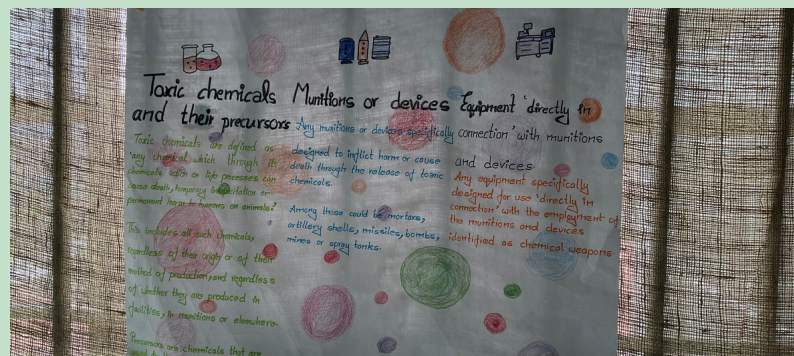 Toxic chemicals
and their precursors
Toxic chemicals are defined as
'any chemical which through its
chemicals action on life processes can
cause death, temporary incapacitation or
permanent harm to humans or animals.'
This includes all such chemicals,
regardless of their origin or of their
method of production, and regardless
of whether they are produced in
facilities, in munitions or elsewhere.
Precursors are chemicals that are
Munitions or devices
Any munitions or devices specifically
designed to inflict harm or cause
death through the release of toxic
chemicals.
Among these could be mortars,
artillery shells, missiles, bombs,
mines or spray tanks.
Equipment 'directly in
connection' with munitions
and devices
Any equipment specifically
designed for use 'directly in
connection' with the employment of
the munitions and devices
identified as chemical weapons.